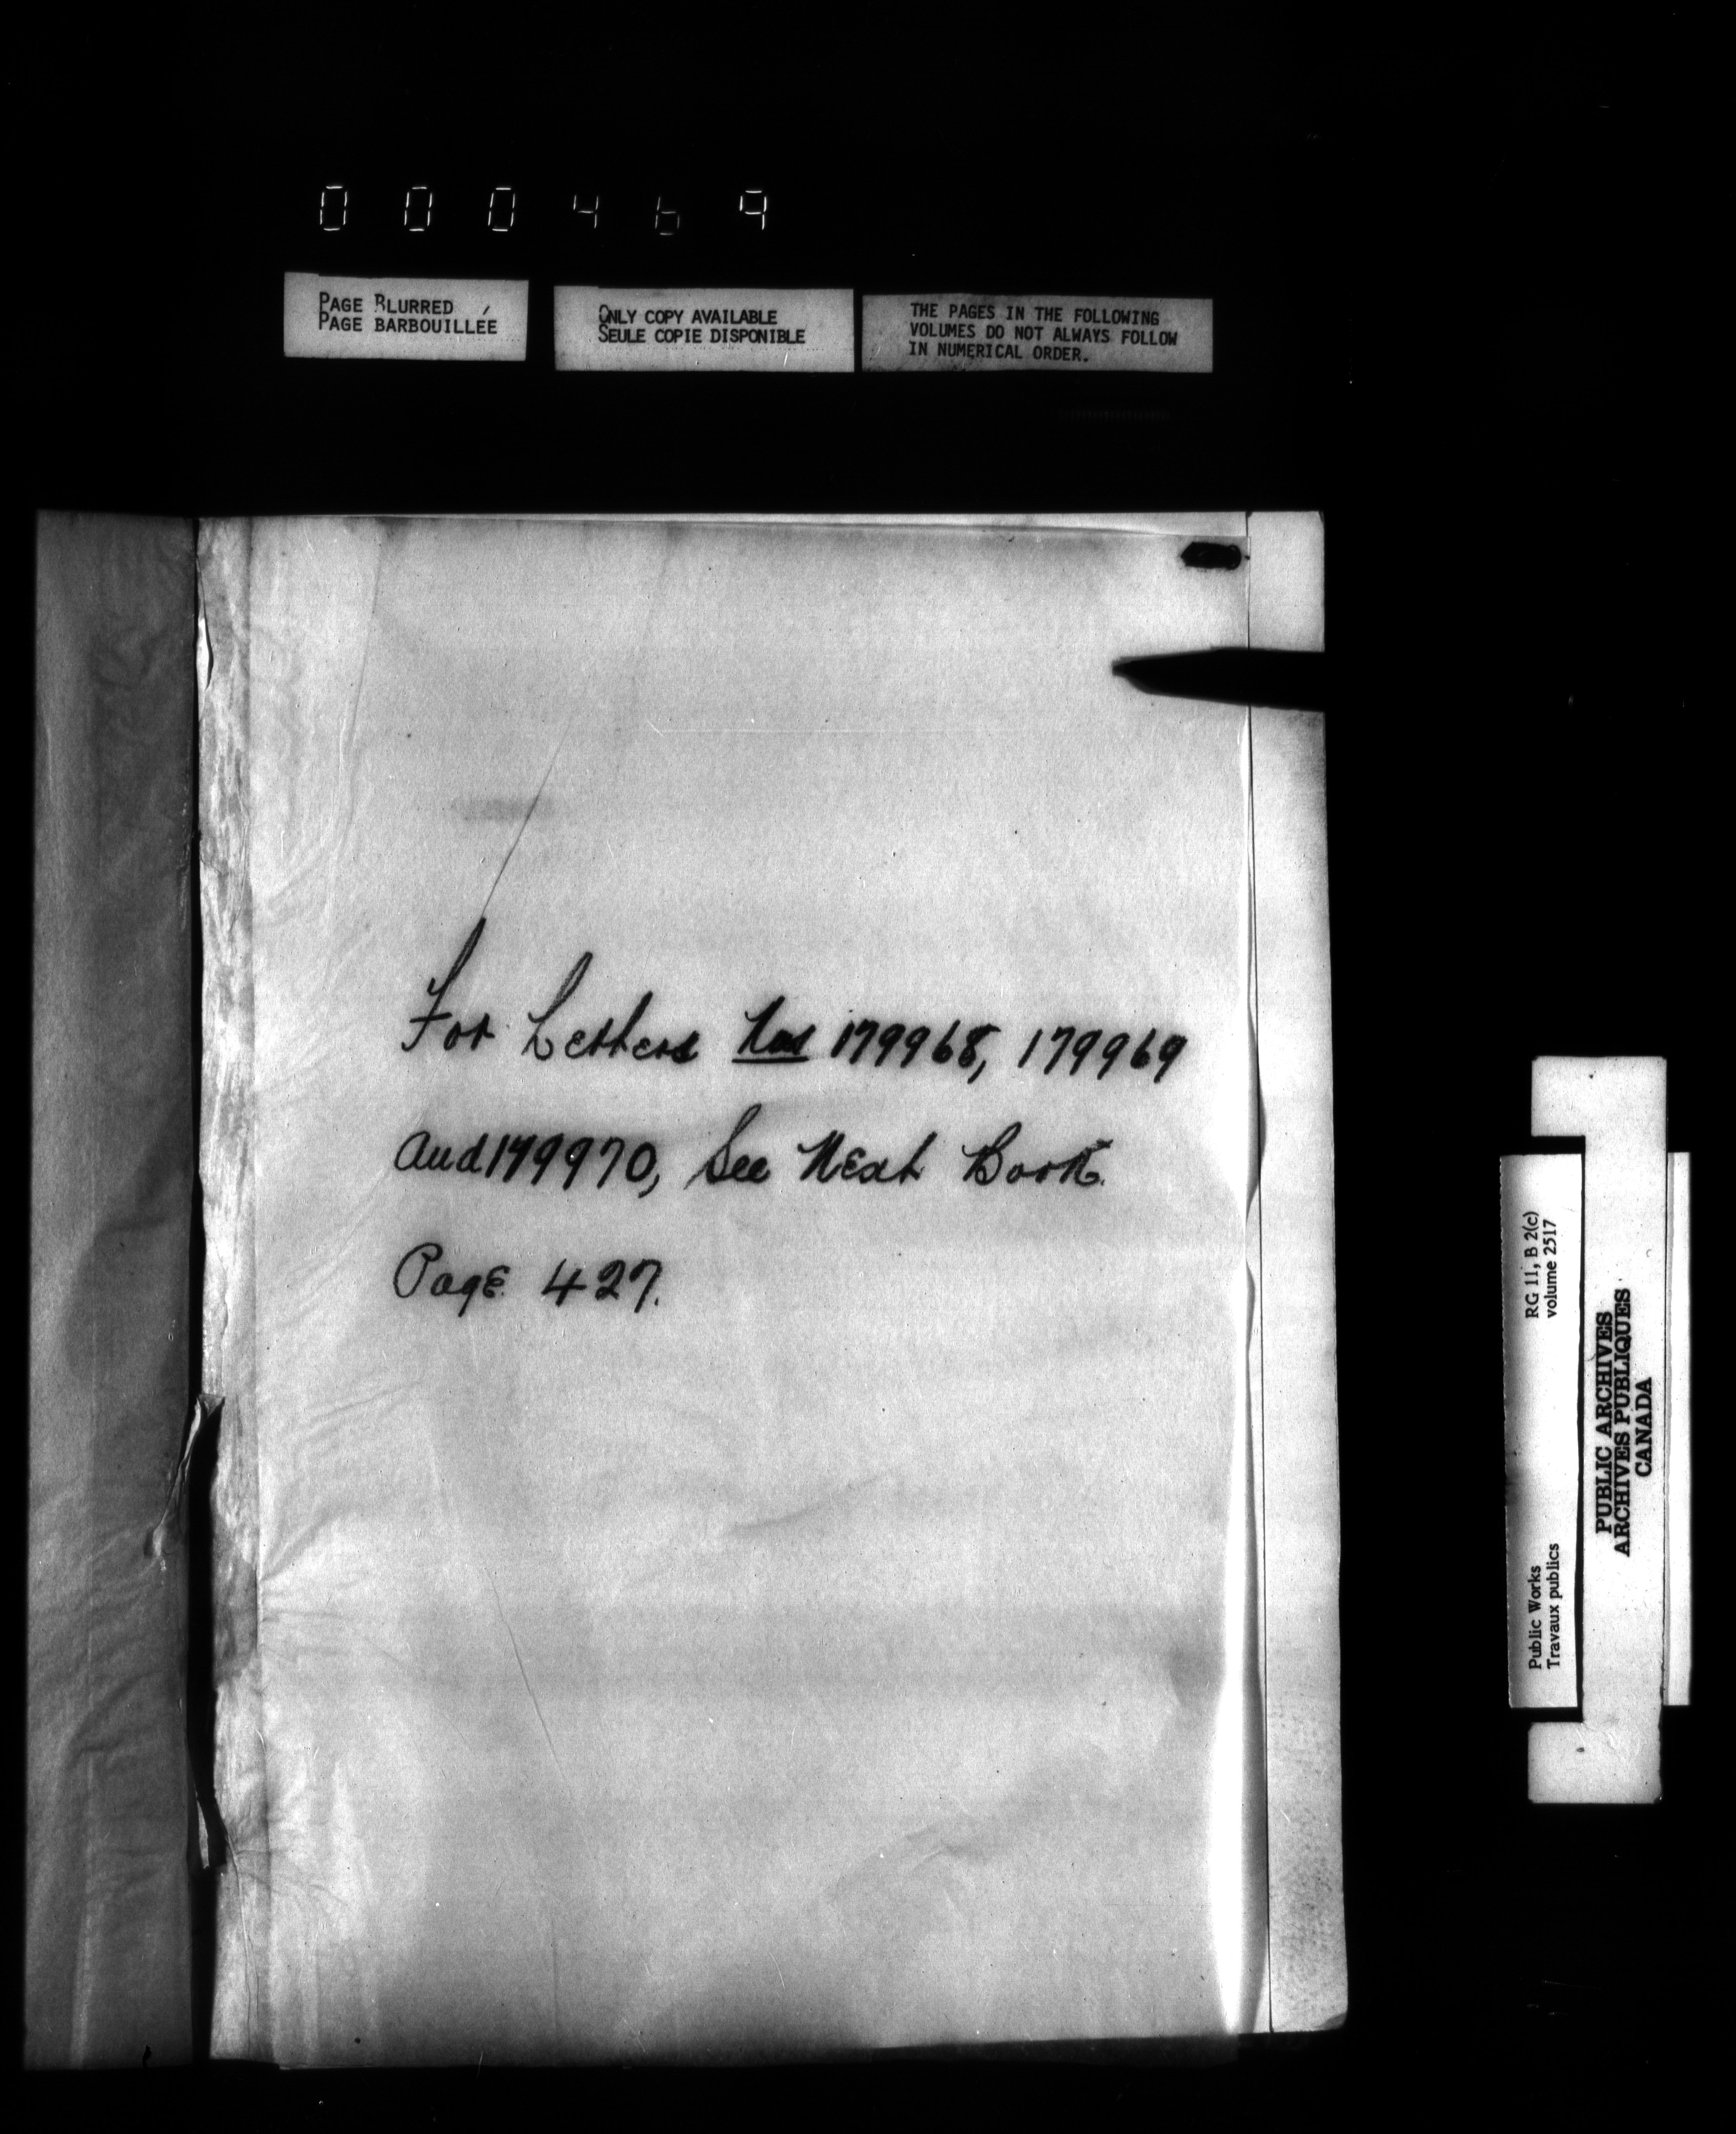 000469
PAGE BLURRED
PAGE BARBOUILLÉE
ONLY COPY AVAILABLE
SEULE COPIE DISPONIBLE
THE PAGES IN THE FOLLOWING
VOLUMES DO NOT ALWAYS FOLLOW
IN NUMERICAL ORDER.
For Letters Nos 179968, 179969
and 179970, See Next Book.
Page 427.
Public Works RG 11, B 2(c)
Travaux publics volume 2517
PUBLIC ARCHIVES
ARCHIVES PUBLIQUES
CANADA